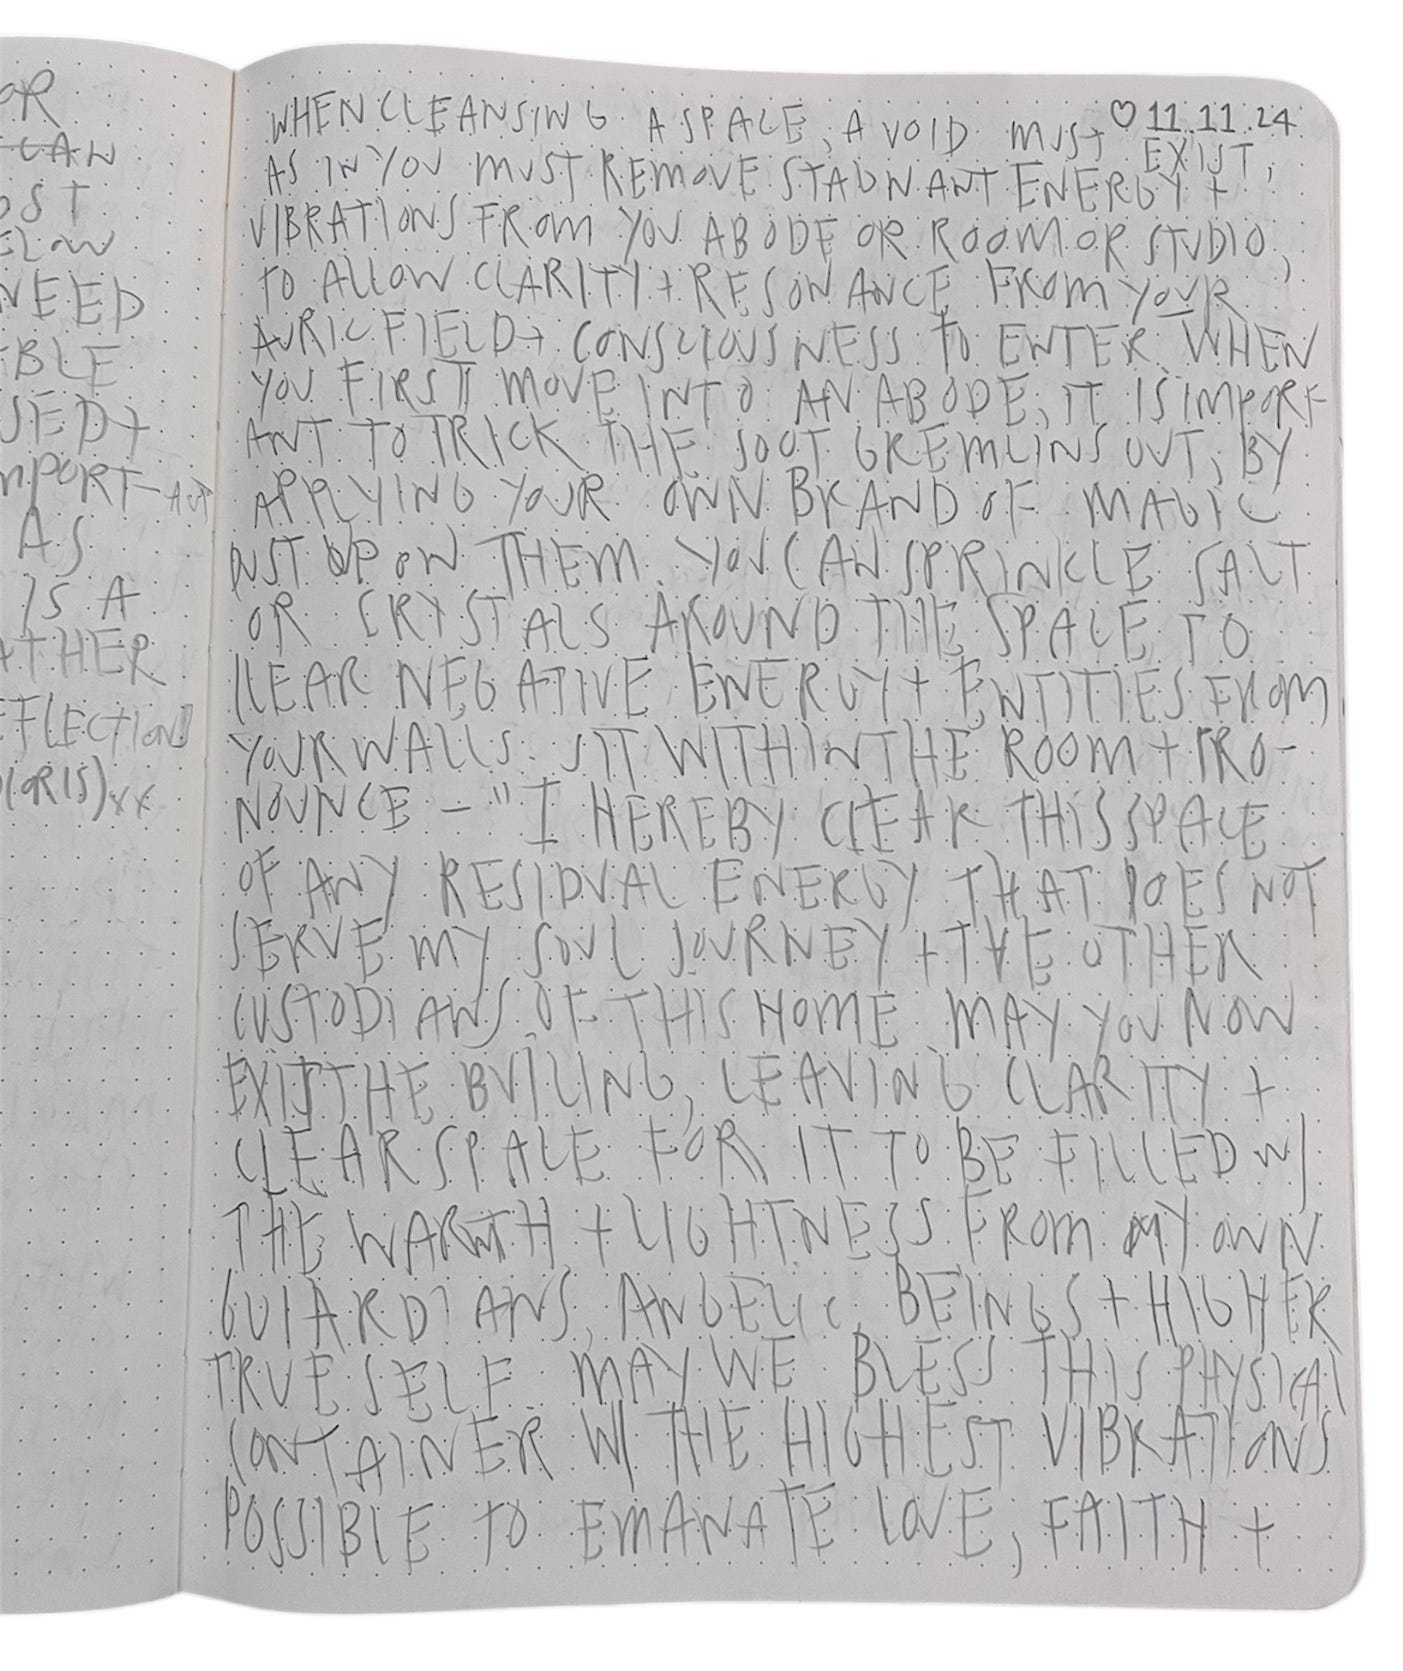 OR
CAN
OST
ELOW
NEED
BLE
SED+
MPORT-ANT
AS
IS A
ATHER
EFLECTIONS
♡ 11.11.24
WHEN CLEANSING A SPACE, A VOID MUST EXIST,
AS IN YOU MUST REMOVE STAGNANT ENERGY +
VIBRATIONS FROM YOU ABODE OR ROOM OR STUDIO,
TO ALLOW CLARITY + RESONANCE FROM YOUR
AURIC FIELD + CONSCIOUSNESS TO ENTER. WHEN
YOU FIRST MOVE INTO AN ABODE, IT IS IMPORT
ANT TO TRICK THE SOOT GREMLINS OUT, BY
APPLYING YOUR OWN BRAND OF MAGIC
DUST UPON THEM. YOU CAN SPRINKLE SALT
OR CRYSTALS AROUND THE SPACE TO
CLEAR NEGATIVE ENERGY + ENTITIES FROM
YOUR WALLS. SIT WITHIN THE ROOM + PRO-
NOUNCE - "I HEREBY CLEAR THIS SPACE
OF ANY RESIDUAL ENERGY THAT DOES NOT
SERVE MY SOUL JOURNEY + THE OTHER
CUSTODIANS OF THIS HOME. MAY YOU NOW
EXIT THE BUILING, LEAVING CLARITY +
CLEAR SPACE FOR IT TO BE FILLED W/
THE WARMTH + LIGHTNESS FROM MY OWN
GUIARDIANS, ANGELIC BEINGS + HIGHER
TRUE SELF. MAY WE BLESS THIS PHYSICAL
CONTAINER W/ THE HIGHEST VIBRATIONS
POSSIBLE TO EMANATE LOVE, FAITH +